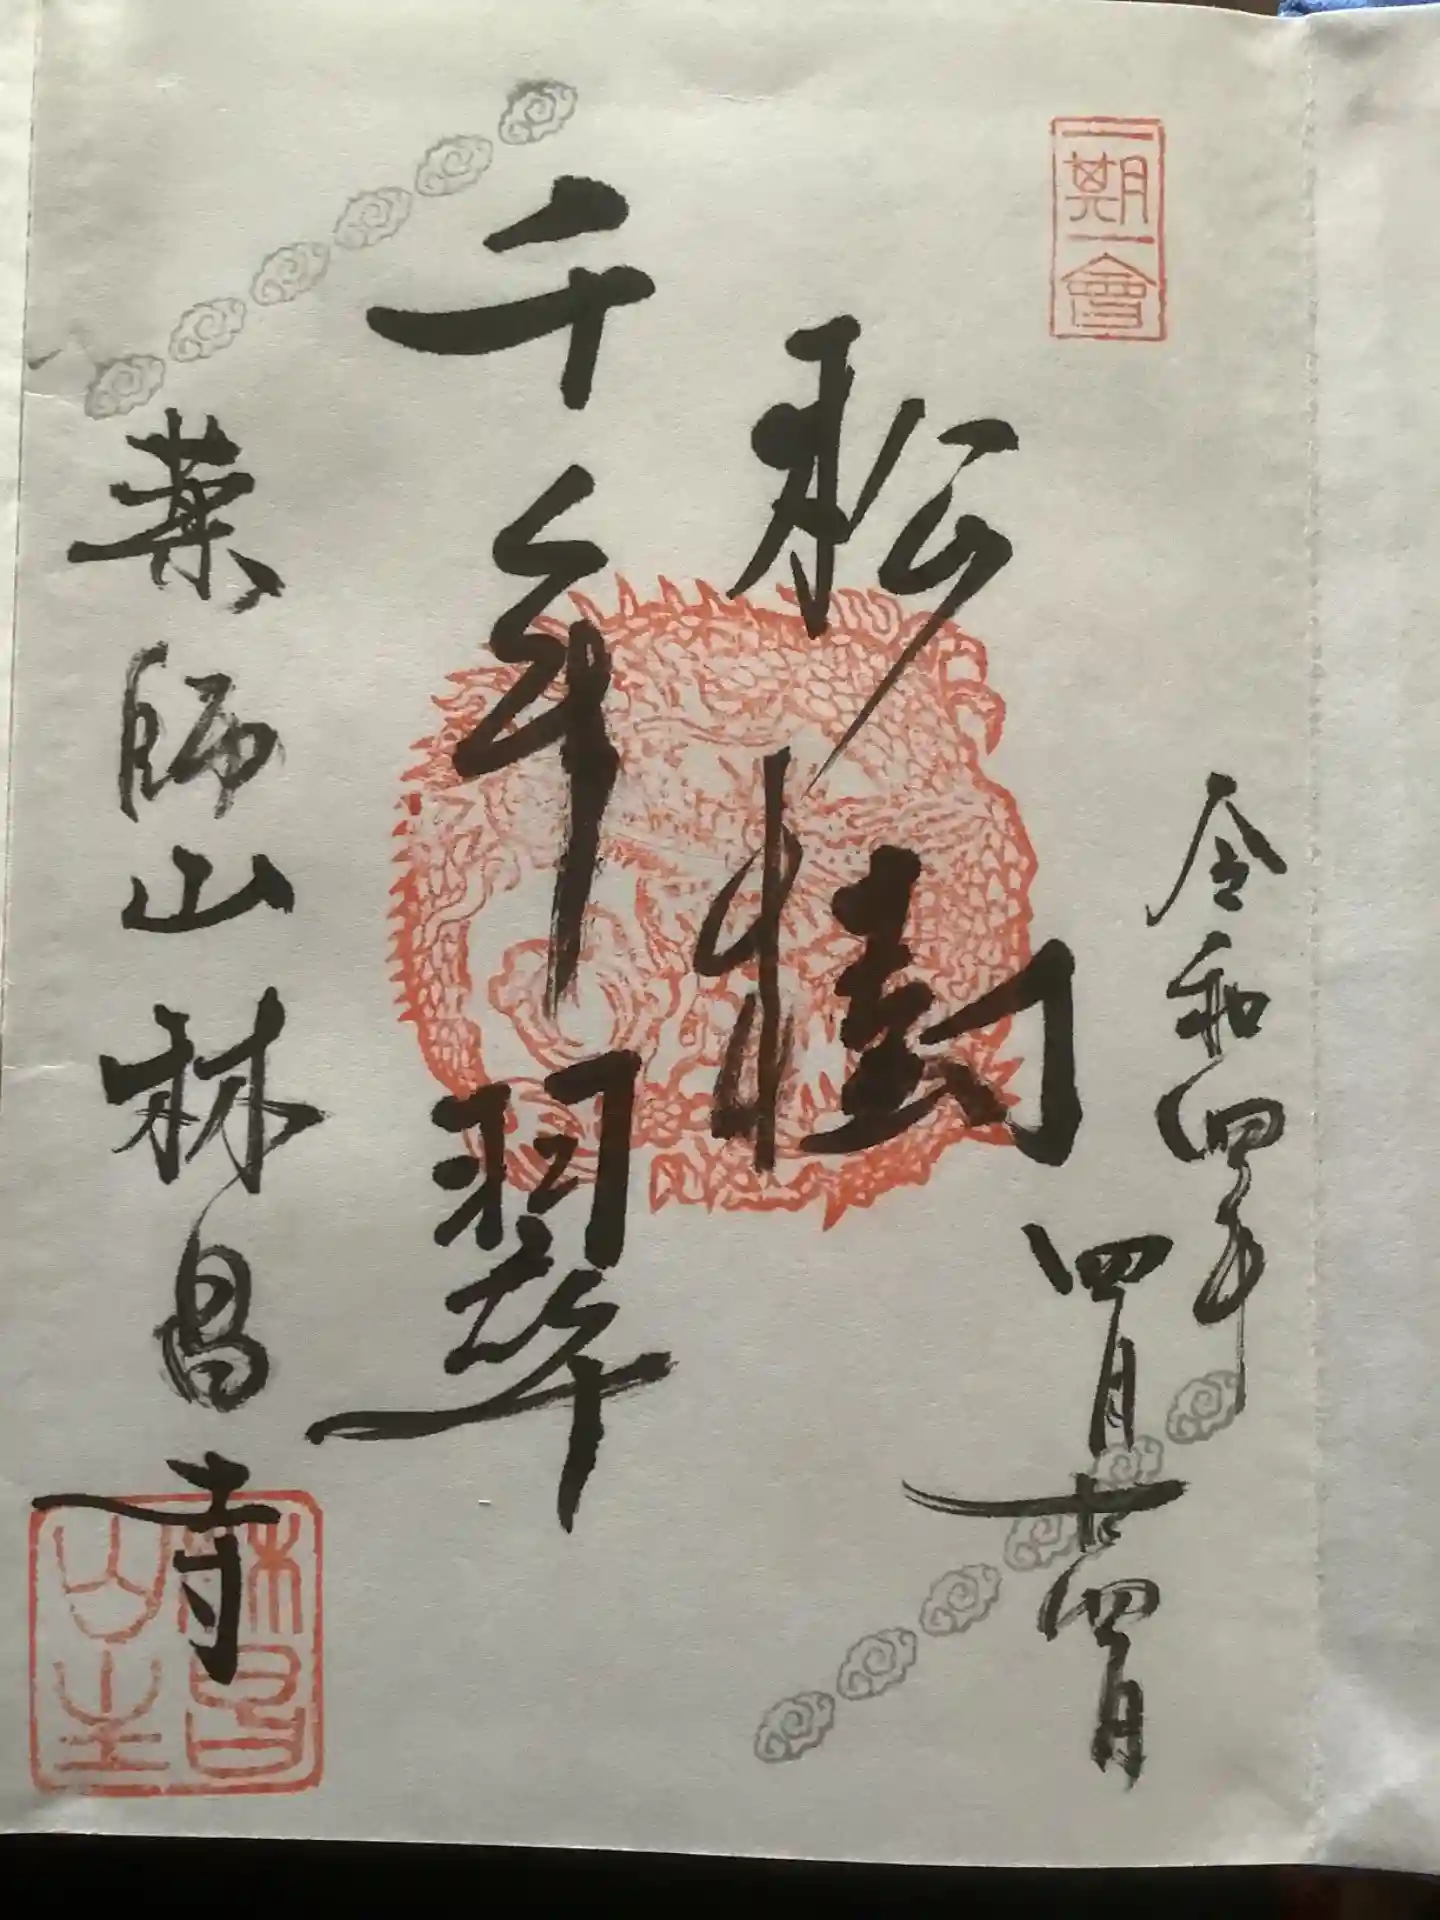 一期一會
令和四年
四月廿四日
松樹
千年翠
薬師山林昌寺
林昌
山主